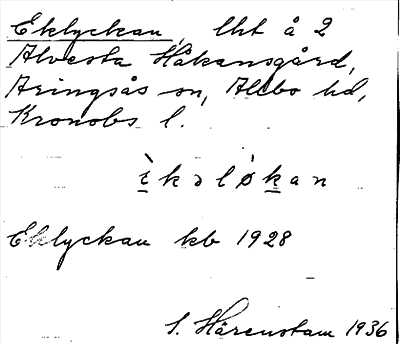 Eklyckan, lht å 2
Alvesta Håkansgård,
Aringsås sn, Allbo hd,
Kronobs l.
è̱kəlø̀ḵan
Eklyckan kb 1928
S. Härenstam 1936